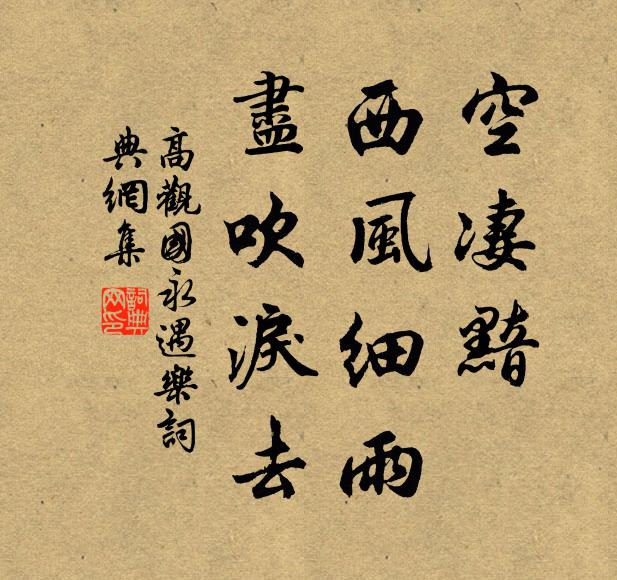 空淒黯
西風細雨
盡吹淚去
高觀國永遇樂詞
典網集
詞典
网印